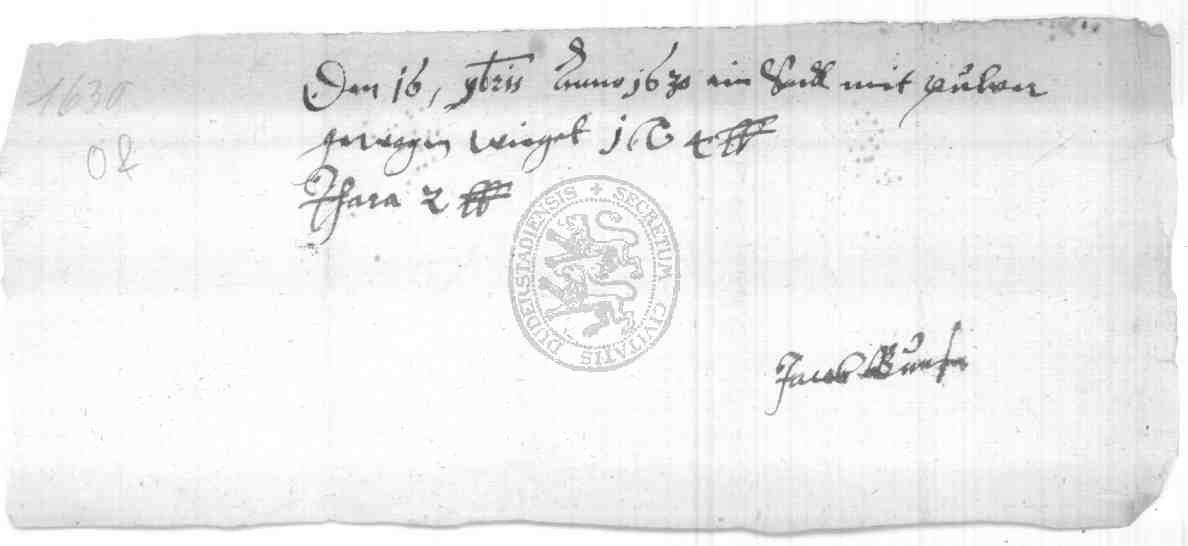 1630
02
Den 16, 9bris Anno 1630 ein Sack mit puluer
gewogen wieget 1 C 4 ℔
Thara 2 ℔
SECRETUM CIVITATIS DUDERSTADIENSIS
Jacob